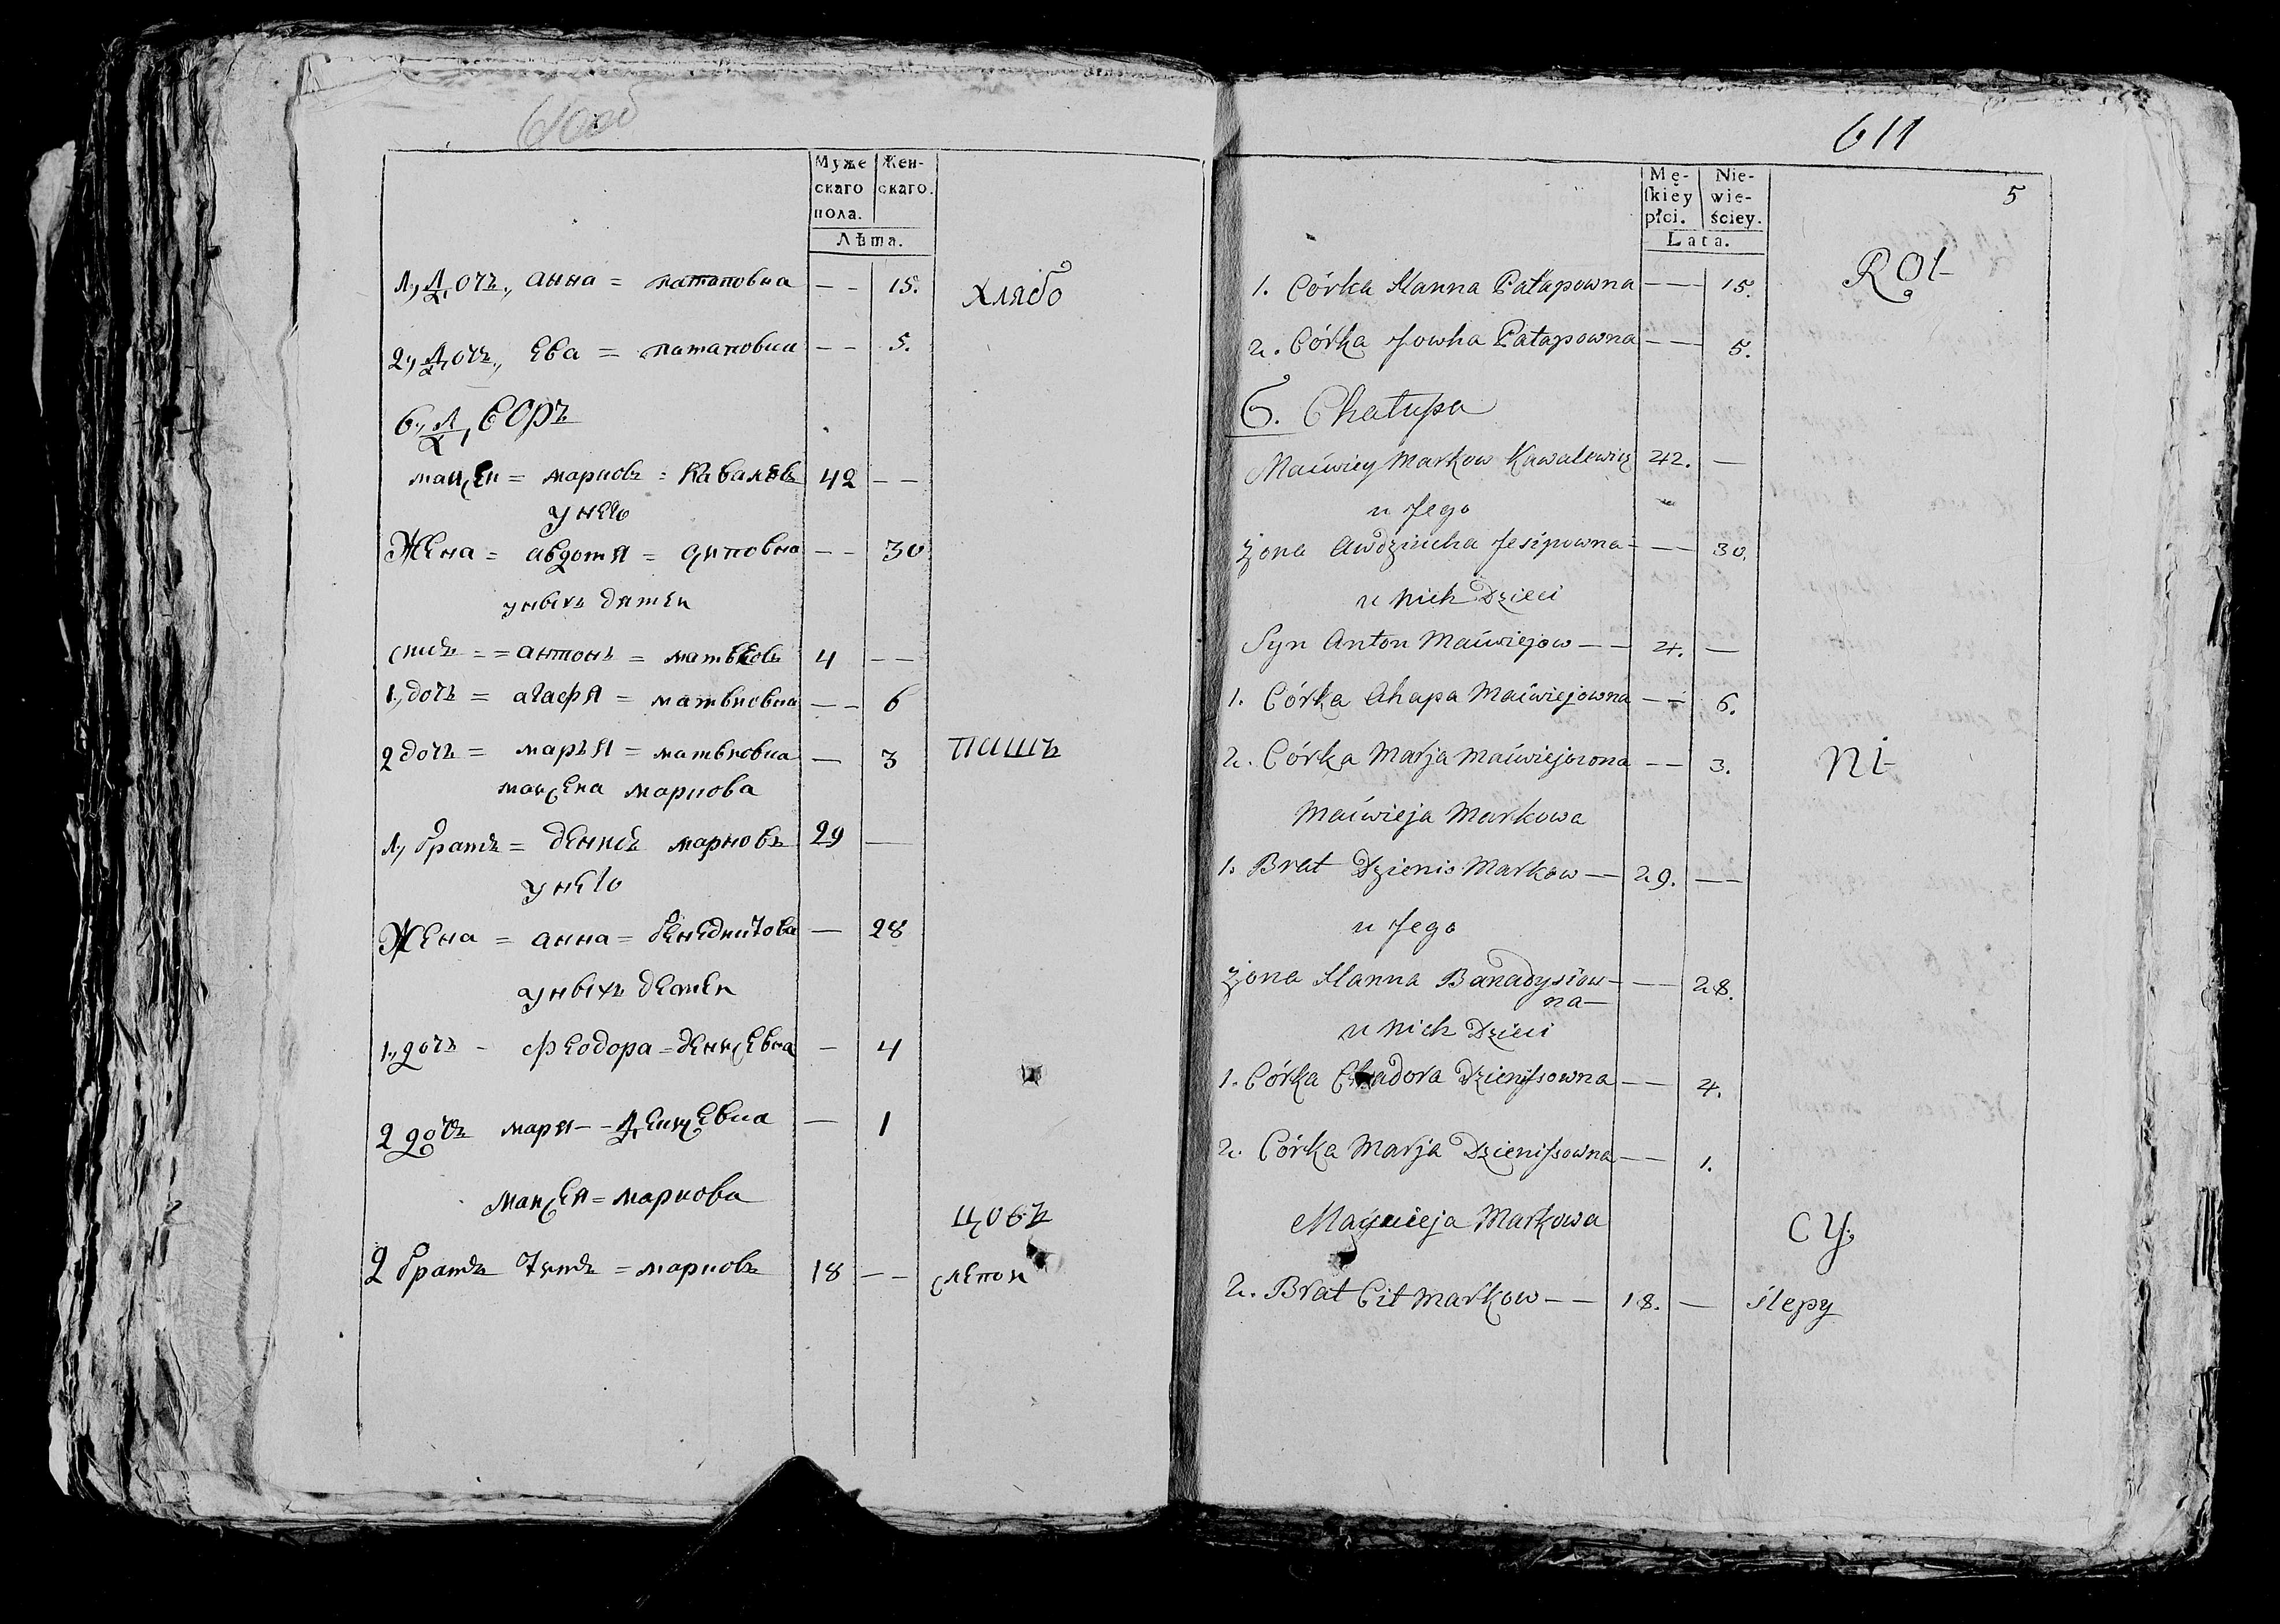 Муже
скаго
пола.
Жен-
скаго.
Лѣта.
1., Дочь, анна = патаповна — — 15. хлябо
2, Дочь, Ева = патаповна — — 5.
6., Дворъ
марковъ = Кавалевъ 42 — —
у него
Жена = авдотя = — — 30
уныхъ дѣтеи
сынъ = = антонъ = матвеевъ 4 — —
1., дочь = агафя = матвиовна — — 6
2 дочь = маръя = матвиовна — 3 пашъ
маркова
1, братъ = денисъ марковъ 29 —
у него
Жена = анна = — 28
уныхъ детеи
1., дочь - феодора = денисевна — 4
2 дочь маря - - Денисевна — 1
маркова
цовъ
2 братъ титъ = марковъ 18 — — слепои
611
5
Mę-
skiey
płci.
Nie-
wie-
ściey.
Lata.
1. Córka Hanna Patapowna — — 15. Rol-
2. Córka Jowha Patapowna — — 5.
6. Chałupa
Maćwiey Markow Kawalewicz 42. —
u Jego
żona Awdziucha Jesipowna — — 30.
u Nich Dzieci
Syn Anton Maćwiejow — — 4. —
1. Córka Ahapa Maćwiejowna — — 6.
2. Córka Marja Maćwiejowna — — 3. ni-
Maćwieja Markowa
1. Brat Dzienis Markow — 29. —
u Jego
żona Hanna Banadysiow- — 28.
na —
u Nich Dzieci
1. Córka Dzienissowna — — 4.
2. Córka Marja Dzienissowna — — 1.
Maćwieja Markowa
cy.
2. Brat Cit Markow — — 18. — ślepy